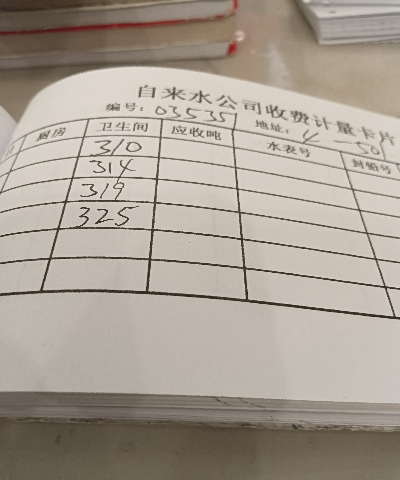 自来水公司收费计量卡片
编号: 035357 地址: 4-501
厨房 卫生间 应收吨 水表号 封铅号
310
314
319
325